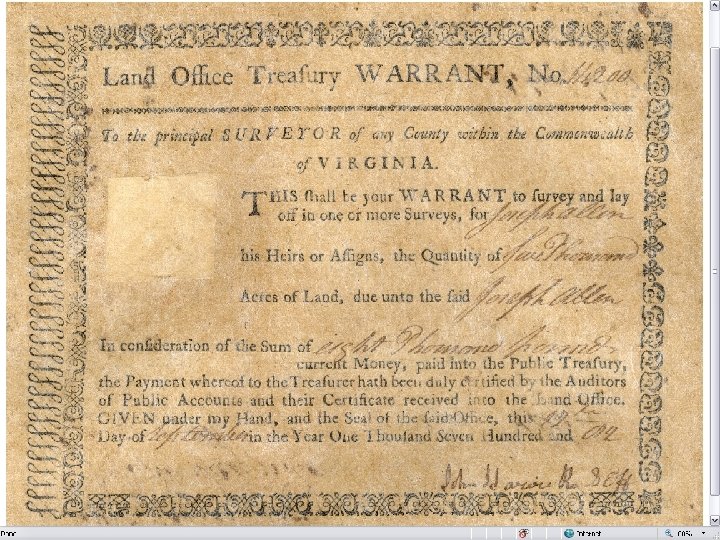 Land Office Treasury WARRANT, No.
To the principal SURVEYOR of any County within the Commonwealth
of VIRGINIA.
THIS shall be your WARRANT to survey and lay
off in one or more Surveys, for Joseph Allen
his Heirs or Assigns, the Quantity of Thousand
Acres of Land, due unto the said Joseph Allen
In consideration of the Sum of eight Thousand Pounds
current Money, paid into the Public Treasury,
the Payment whereof to the Treasurer hath been duly certified by the Auditors
of Public Accounts and their Certificate received into the Land Office.
GIVEN under my Hand, and the Seal of the said Office, this
Day of September in the Year One Thousand Seven Hundred and
Done
Internet